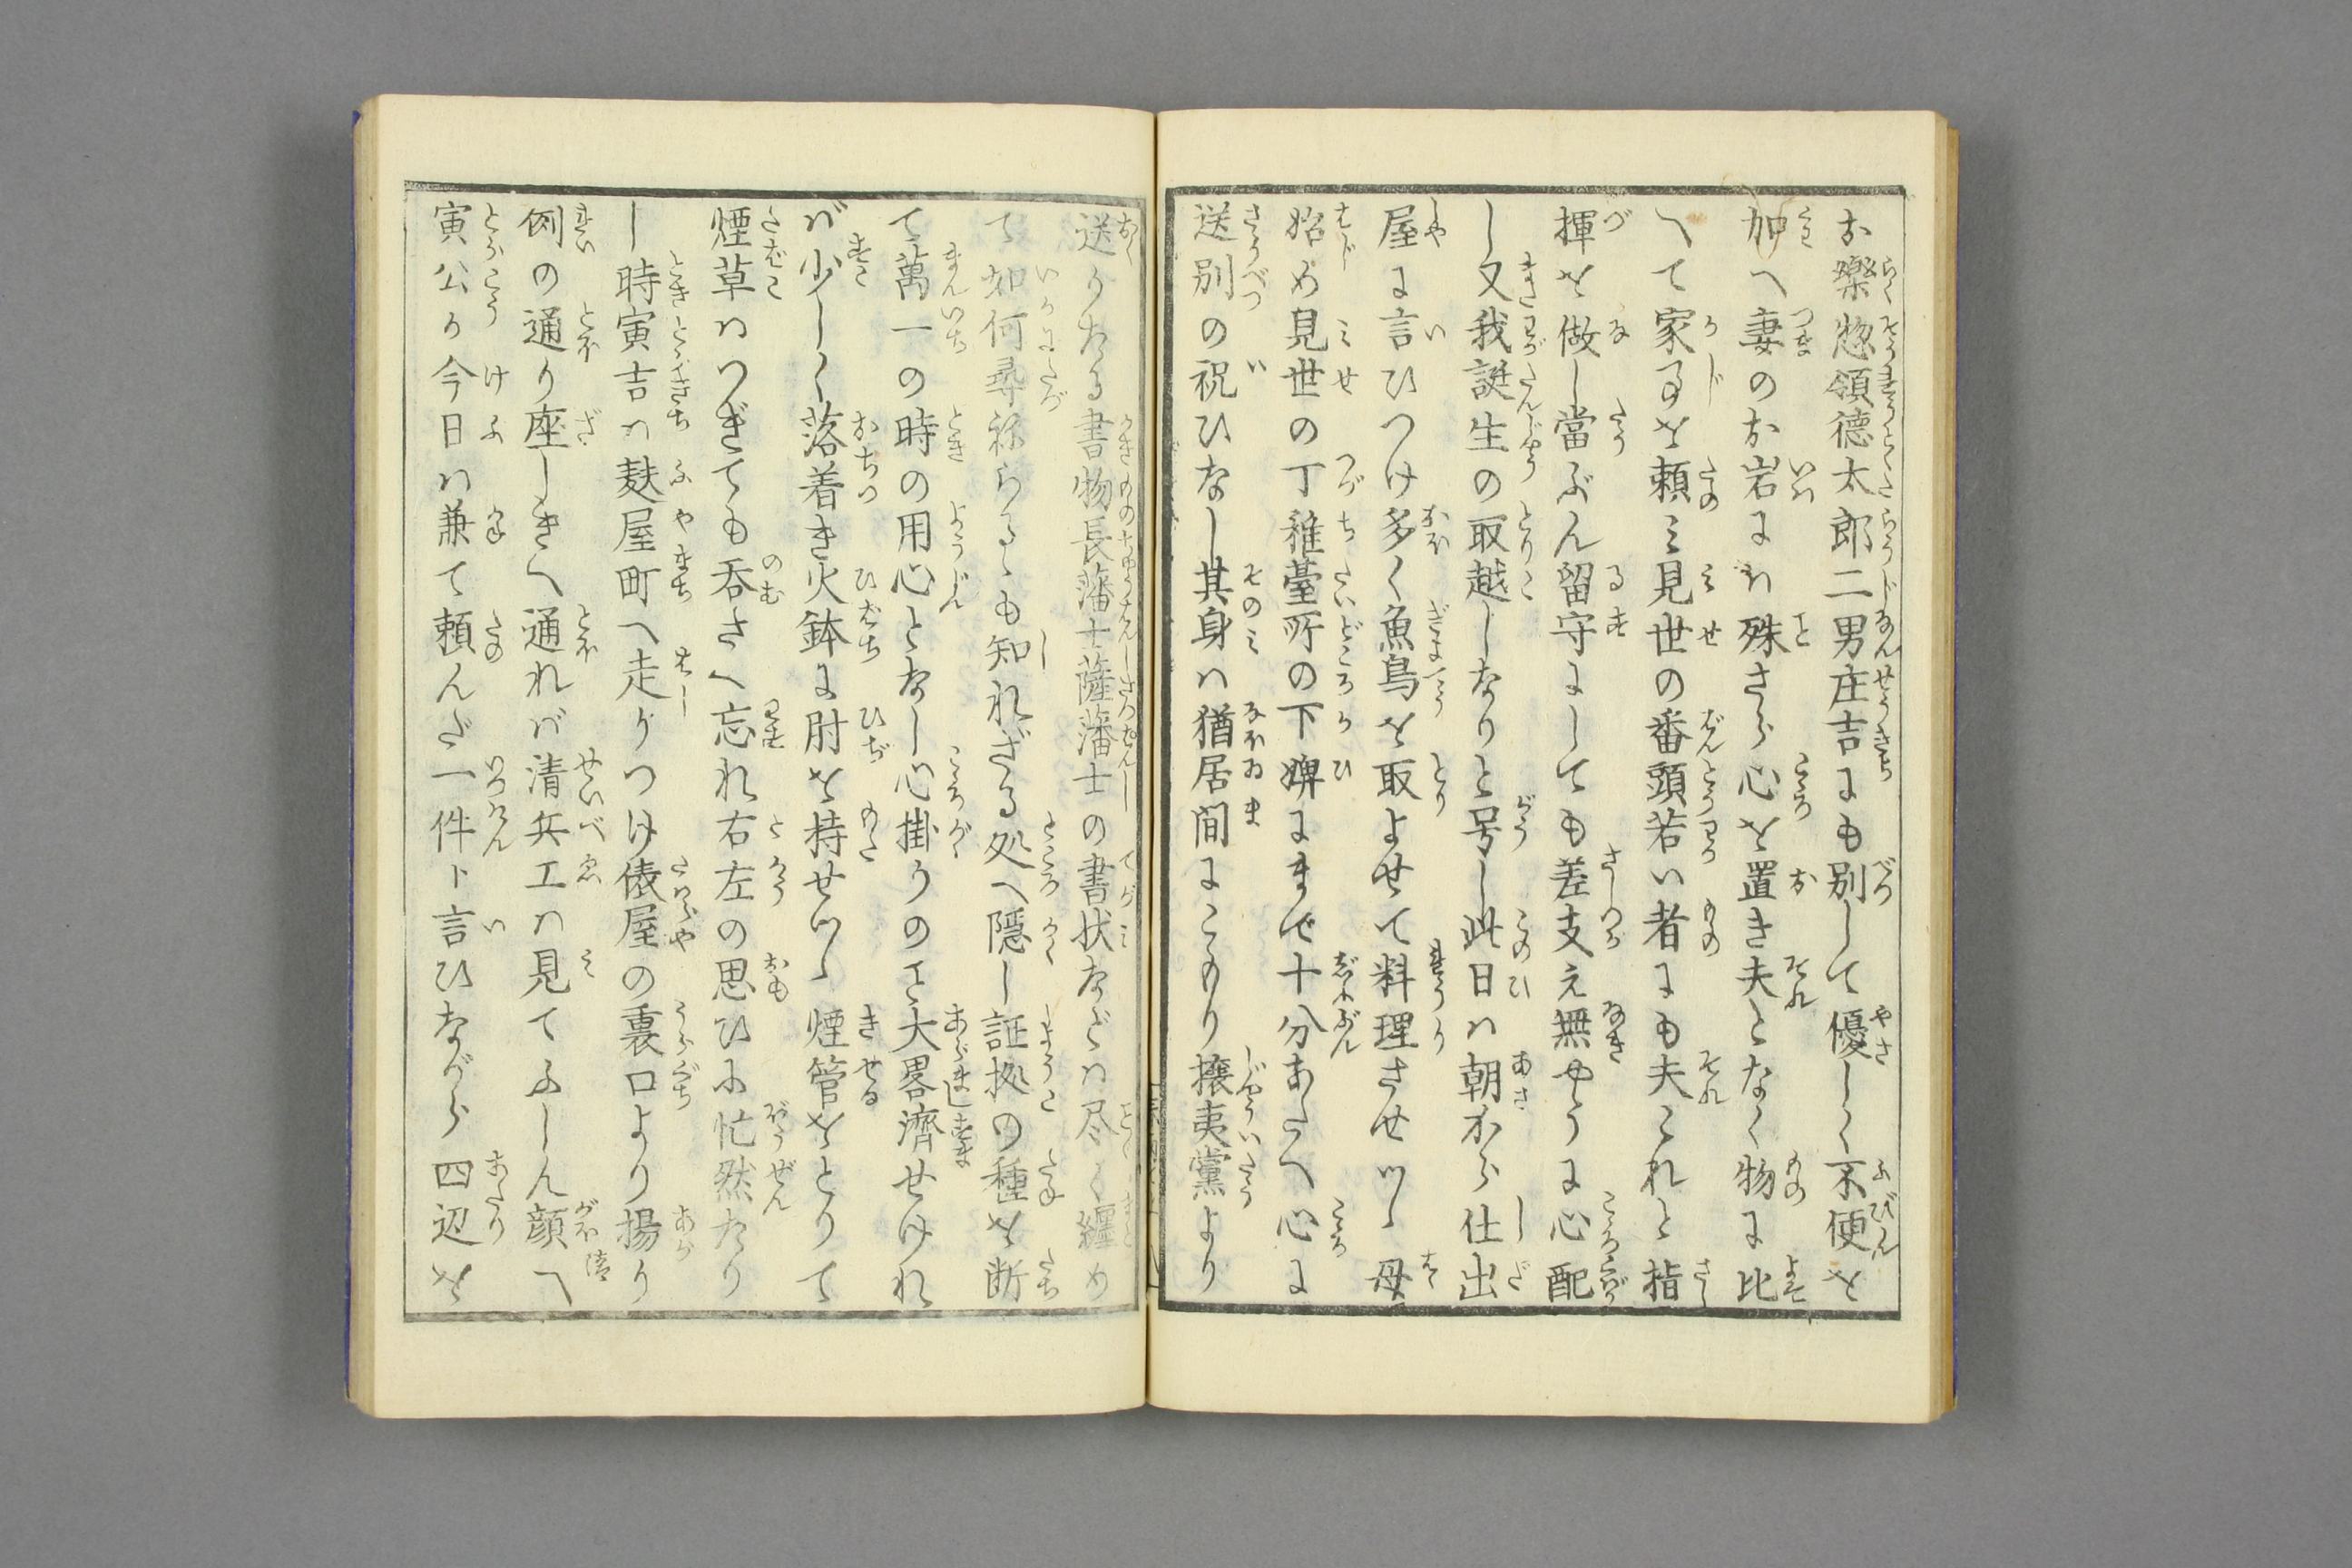 お樂惣領德太郎二男庄吉にも別して優しく不便を
加へ妻のお岩にハ殊さら心を置き夫となく物に比
へて家事を頼ミ見世の番頭若い者にも夫これと指
揮を做し當ぶん留守にしても差支え無やうに心配
し又我誕生の取越しなりと号し此日ハ朝から仕出
屋に言ひつけ多く魚鳥を取よせて料理させツヽ母
始め見世の丁稚臺所の下婢にまで十分あたへ心に
送別の祝ひなし其身ハ猶居間にこもり攘夷黨より
送りたる書物長藩士薩藩士の書状などハ尽く纒め
て如何尋ねらるゝも知れざる処へ隠し証拠の種を断
て萬一の時の用心となし心掛りのこと大畧濟せけれ
バ少しく落着き火鉢に肘を持せツヽ煙管をとりて
煙草ハつぎても呑さへ忘れ右左の思ひに忙然たり
し時寅吉ハ麸屋町へ走りつけ俵屋の裏口より揚り
例の通り座しきへ通れバ清兵工ハ見てふしん顔へ清
寅公か今日ハ兼て頼んだ一件ト言ひながら四辺を